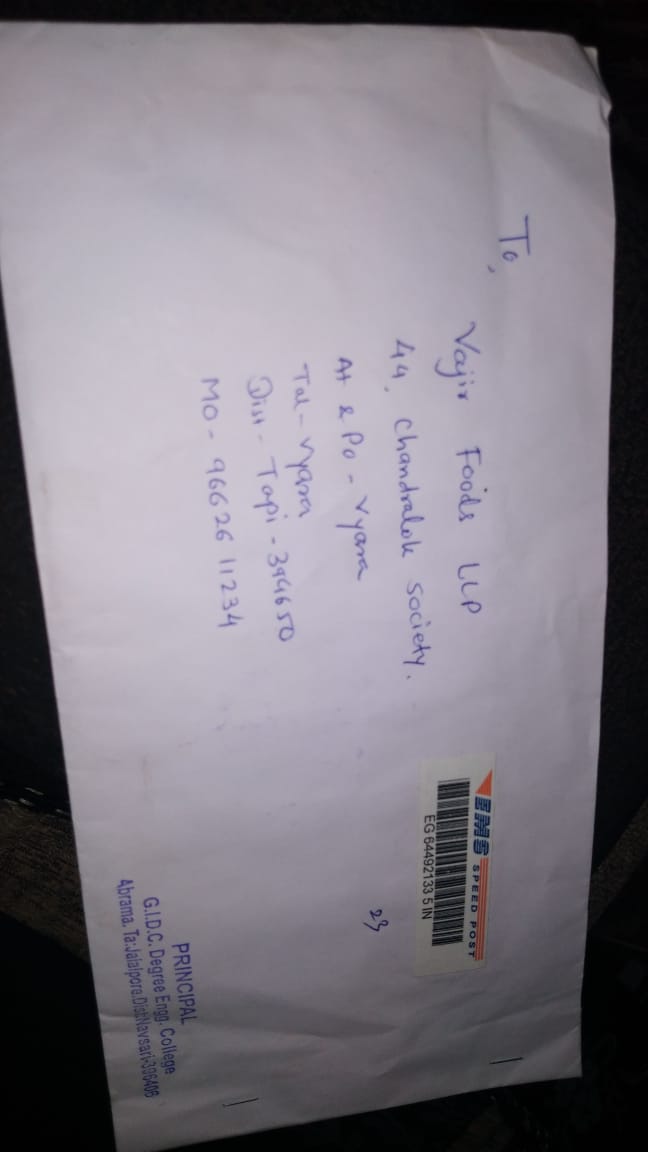 To,
Vajir Foods LLP
44, Chandralok Society.
At & Po - Vyara
Tal - Vyara
Dist - Tapi - 394650
Mo - 96626 11234
EMS SPEED POST
EG 64492133 5 IN
23
PRINCIPAL
G.I.D.C. Degree Engg. College
Abrama. Ta:Jalalpore.Dist:Navsari-396406